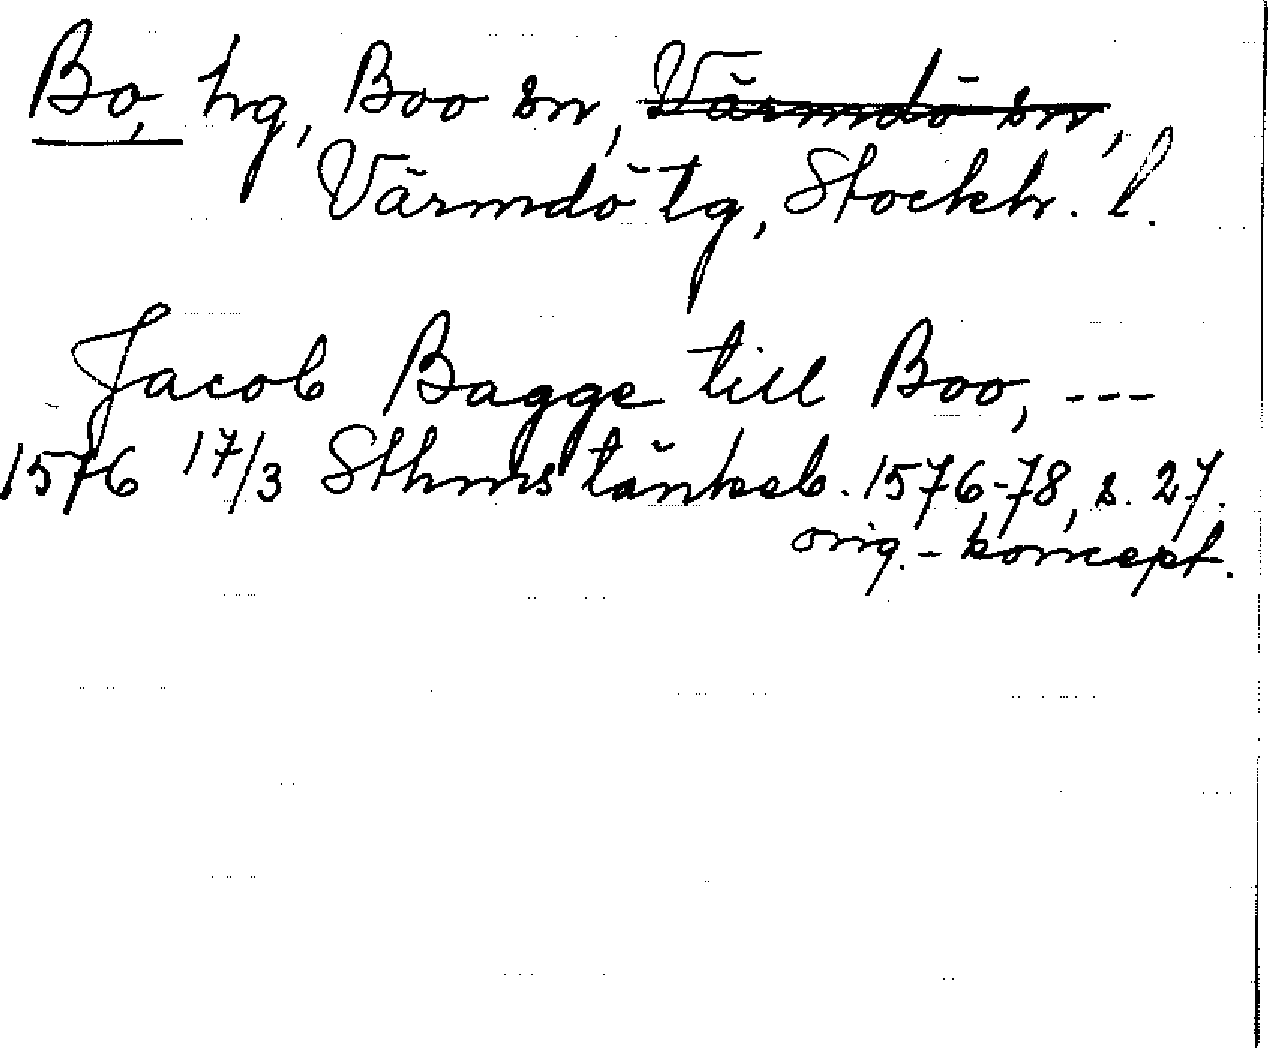 Bo, hg, Boo sn, Värmdö sn,
Värmdö tg, Stockh. l.
Jacob Bagge till Boo, ---
1576 17/3 Sthms tänkeb. 1576-78, s. 27.
orig.-koncept.